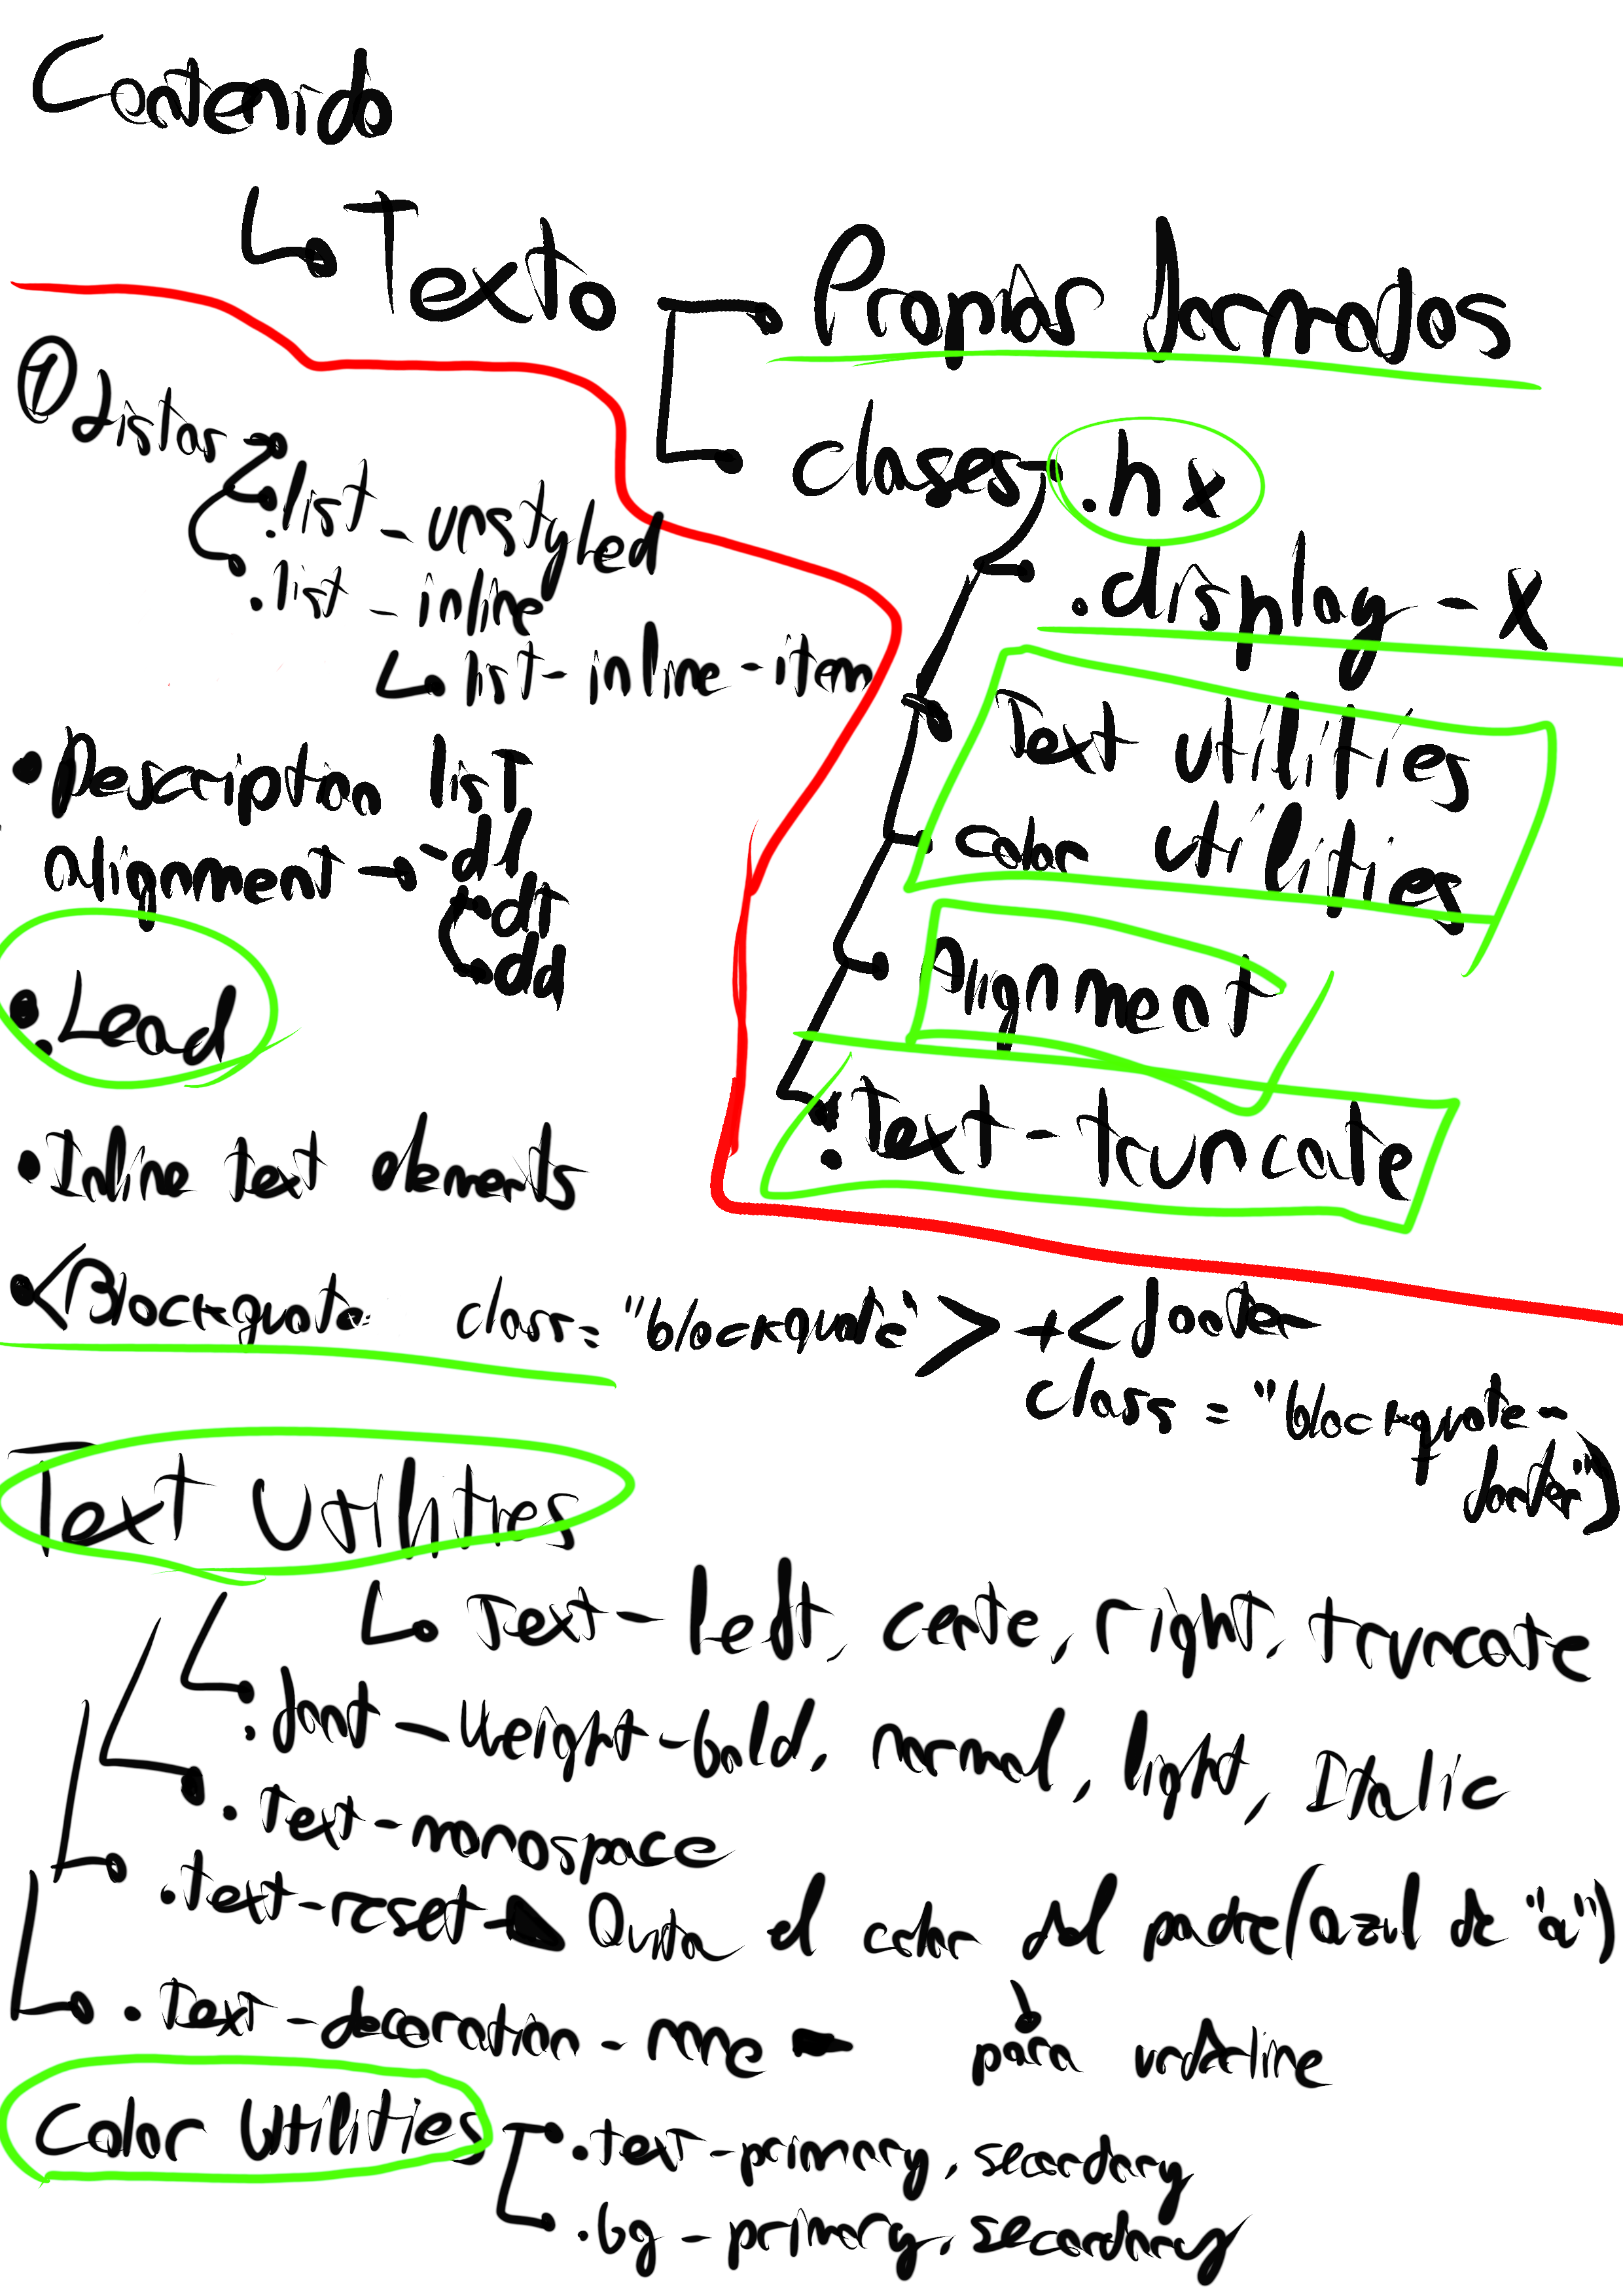 Contenido
Texto
Propios formatos
clases
.hx
.display-x
Text utilities
color utilities
Alignment
.Text-truncate
① Listas
.list-unstyled
.list-inline
list-inline-item
• Description list
alignment → -dl
dt
dd
• .Lead
• Inline text elements
• <Blockquote class="blockquote"> + <footer
class="blockquote-
footer")
Text Utilities
Text-left, cente, right, truncate
.font-weight-bold, normal, light, Italic
.Text-monospace
.text-reset → Quita el color del padre (azul de "a")
.Text-decoration-none - para underline
Color Utilities
.text-primary, secondary
.bg-primary, secondary